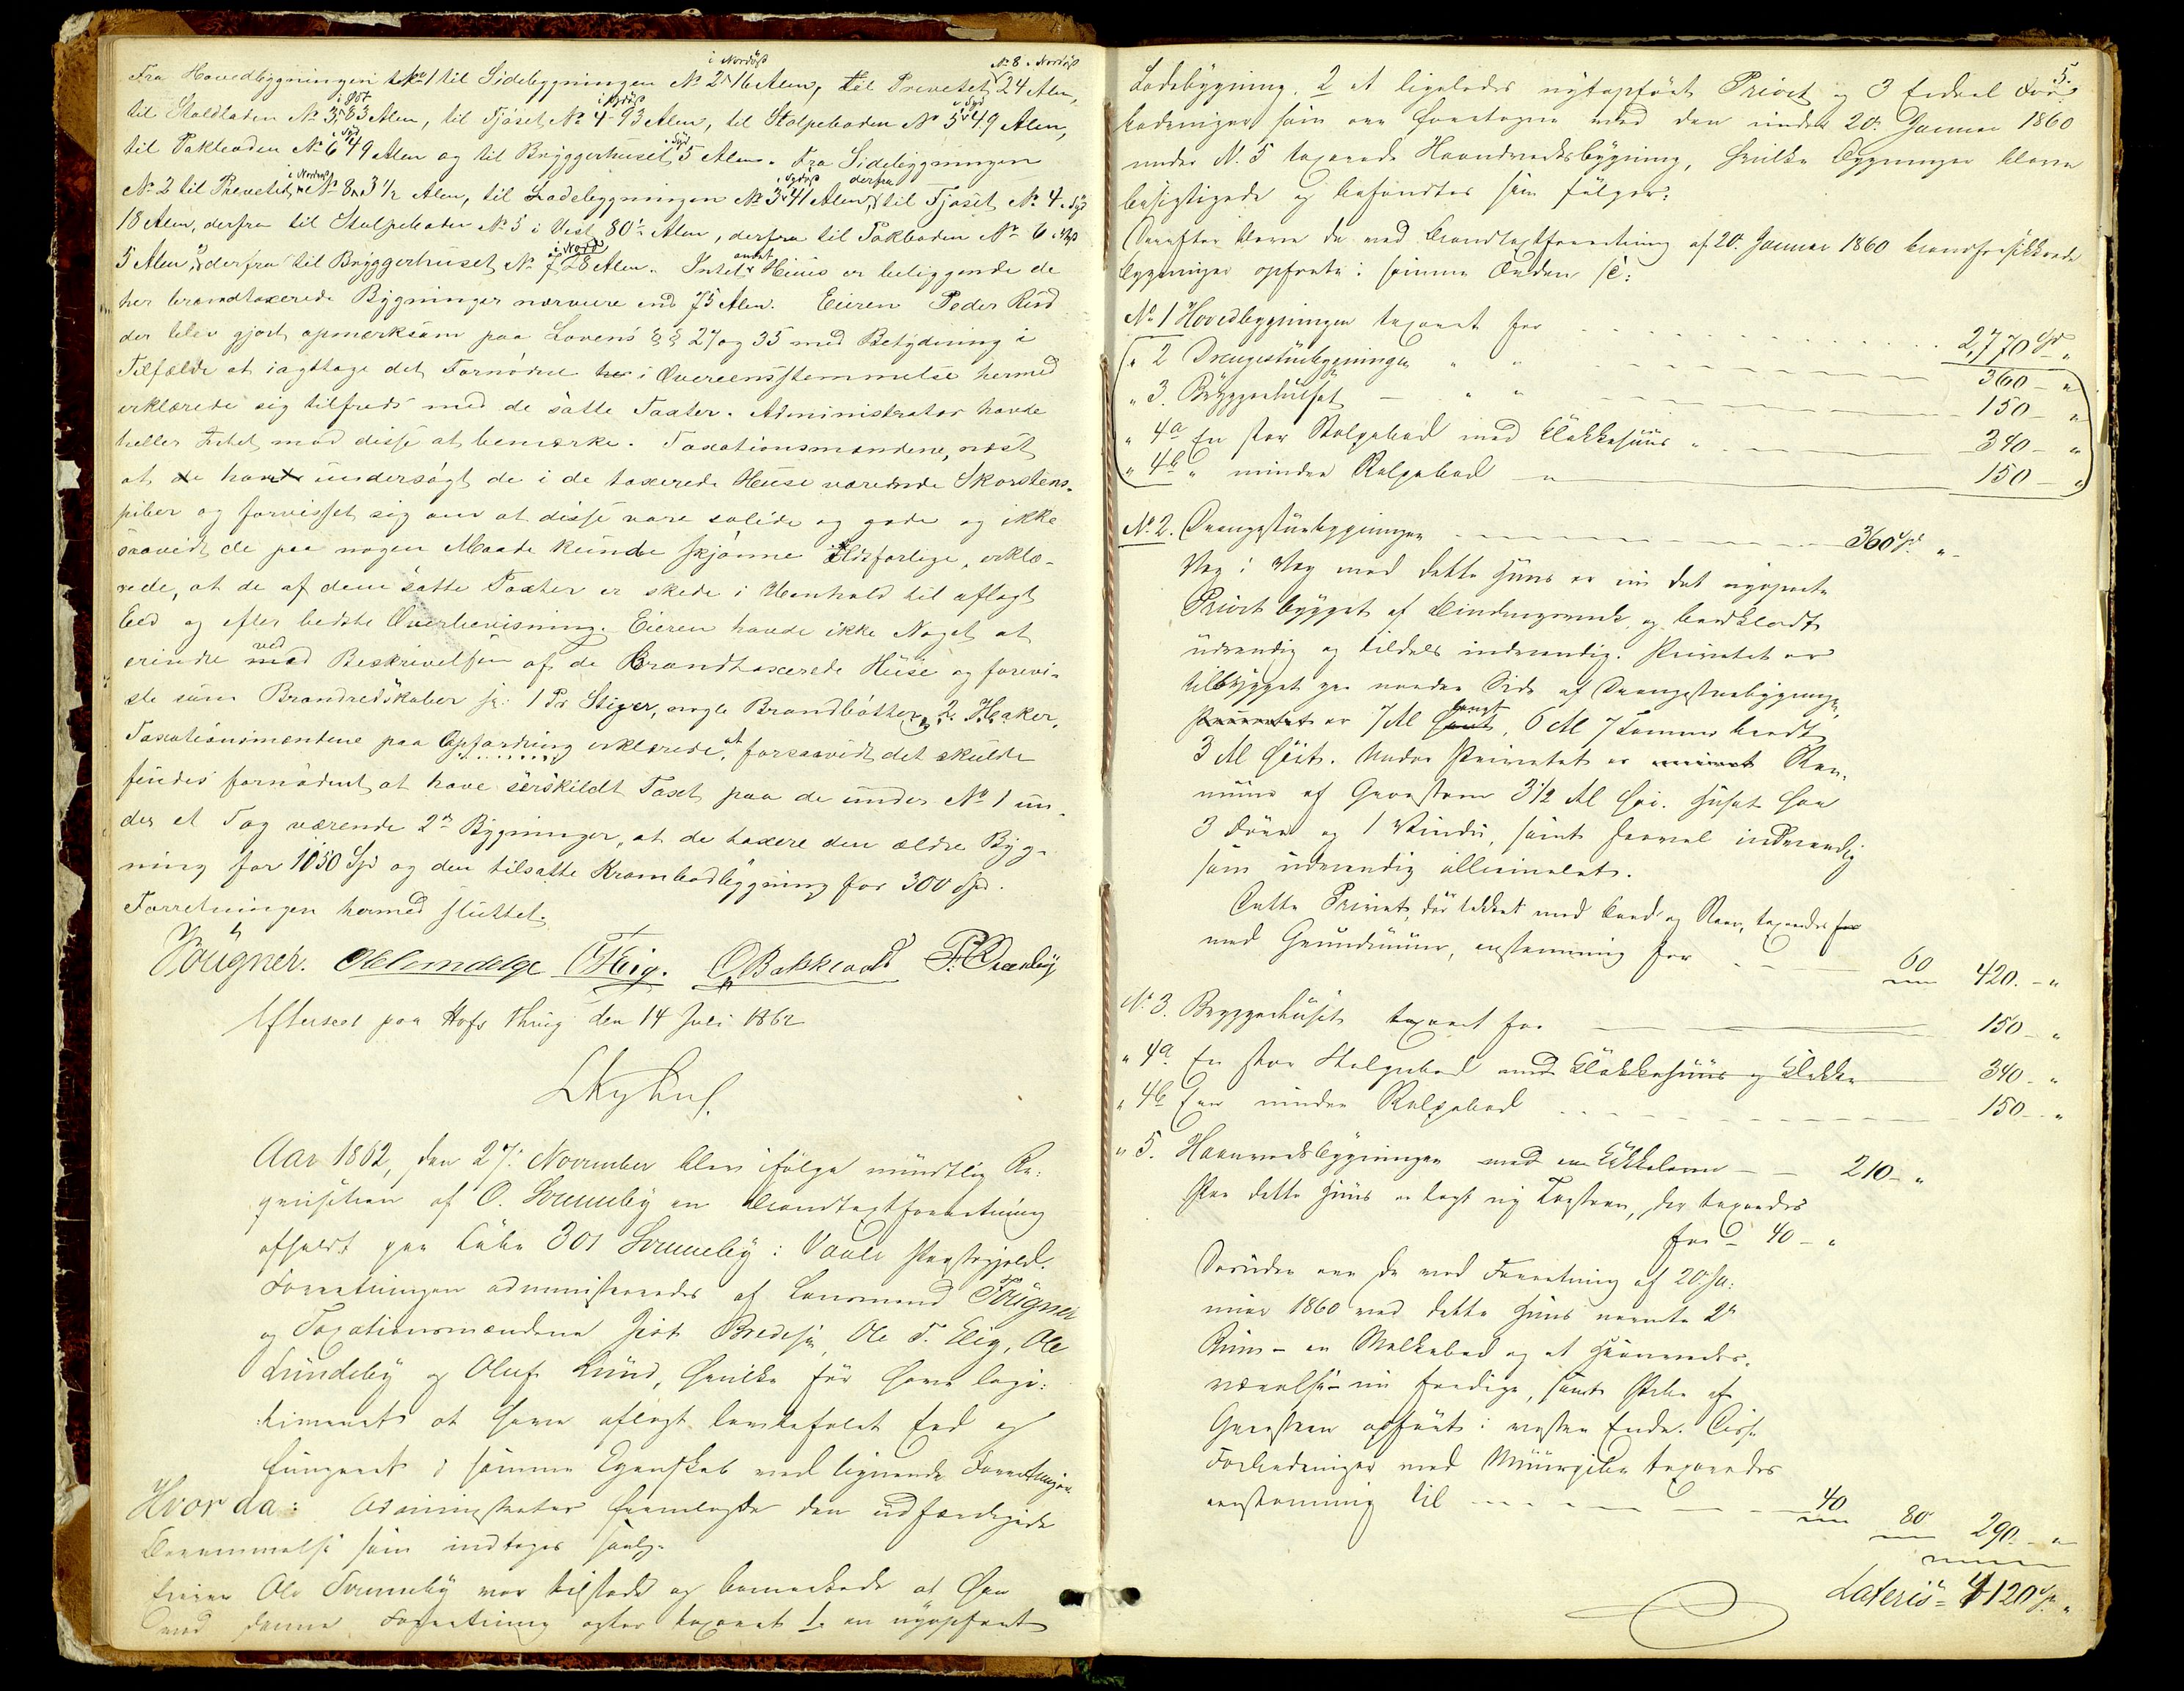 Fra Hovedbygningen No 1 til Sidebygningen No 2 i Nordöst 16 Alen, til Privetet No 8 i Nordöst 24 Alen,
til Staldladen No 3 i Öst 83 Alen, til Fjöset No 4 i Sydöst 93 Alen, til Stolpeboden No 5 i Syd 49 Alen,
til Pakboden No 6 i Syd 49 Alen og til Bryggerhuset i Syd 5 Alen. Fra Sidebygningen
No 2 til Privetet i Nordöst No 8 3 1/2 Alen, til Ladebygningen No 3 i Sydöst 41 Alen, derfra til Fjöset No 4 i Syd
18 Alen, derfra til Stolpeboden No 5 i Vest 80 Alen, derfra til Pakboden No 6 i
5 Alen, derfra til Bryggerhuset No 7 i Nord 28 Alen. Intet andet Huus er beliggende de
her brandtaxerede Bygninger nærmere end 75 Alen. Eieren Peder Rud
der blev gjort opmærksom paa Lovens §§ 27 og 35 med Betydning i
Tilfælde at iagttage det Fornödne her i Overeensstemmelse hermed
erklærede sig tilfreds med de satte Taxter. Administrator havde
heller Intet mod disse at bemærke. Taxationsmændene, næst
at de have undersögt de i de taxerede Huse værende Skorstens-
piber og forvisset sig om at disse vare solide og gode og ikke
saavidt de paa nogen Maade kunde skjönne ildsfarlige, erklæ-
rede, at de af dem satte Taxter er skede i Henhold til aflagt
Eed og efter bedste Overbeviisning. Eieren havde ikke Noget at
erindre ved Beskrivelsen af de Brandtaxerede Huse og forevi-
ste som Brandredskaber sc: 1 Pr Stiger, nogle Brandbötter, 2 Haker.
Taxationsmændene paa Opfordring erklærede, at forsaavidt det skulde
findes fornödent at have særskildt Taxt paa de under No 1 un-
der et Tag værende 2de Bygninger, at de taxere den ældre Byg-
ning for 1050 Spd og den tilsatte Krambodbygning for 300 Spd.
Forretningen hermed sluttet.
Fougner. OBakkerud P.
Efterseet paa Hofs Thing den 14 Juli 1862
Aar 1862, den 27. November blev ifölge mundtlig Re-
qvisition af O. Sremeby en Brandtaxtforretning
afholdt paa Löbe 301 Sremeby i Vaale Præstegjeld.
Forretningen administreredes af Lensmand Fougner
og Taxationsmændene Bredesen, Ole T. Elig, Ole
Lundeby og Oluf Lund, hvilke för have legi-
timeret at have aflagt lovbefalet Eed og
fungeret i samme Egenskab ved lignende Forretninger
Hvor da: Administrator fremlagde den udfærdigede
Berammelse som indtages saalz.
Eieren Ole Sremeby var tilstede og bemærkede at han
ved denne Forretning agter taxeret 1. en nyopfört
5.
Ladebygning. 2 et ligeledes nyopfört Privet og 3 Endeel For-
bedringer som ere foretagne med den under 20. Januar 1860
under N. 5 taxerede Haandværksbygning, hvilke Bygninger bleve
besigtigede og befandtes som fölger:
Derefter bleve de ved Brandtaxtforretning af 20. Januar 1860 brandforsikkrede
Bygninger opförte i samme Orden sc:
No 1 Hovedbygningen taxeret for 2,770 Spd "
" 2 Drengestuebygningen " " 360 - "
" 3. Bryggerhuset - " " 150 - "
" 4a En stor Stolpebod med Klokkehuus " 340 - "
" 4b " mindre Stolpebod " 150 - "
No 2. Drengestuebygningen 360 Spd "
Væg i Væg med dette Huus er nu det nyopförte
Privet bygget af Bindingsværk og bordklædt
udvendig og tildels indvendig. Privetet er
tilbygget paa nordre Side af Drengestuebygningen,
Privetet er 7 Al langt, 6 Al 7 Tommer bredt
3 Al höit. Under Privetet er muret Steen-
muur af Graasteen 3 1/2 Al höi. Huset har
3 Döre og 1 Vindu, samt saavel indvendig
som udvendig illumineret.
Dette Privet, der tækket med Bord og Steen, taxeredes for
med Grundmuur, eenstemmig for 60 420. - "
No 3. Bryggerhuset taxeret for 150 - "
" 4a. En stor Stolpebod med Klokkehuus og Klokke 340 - "
" 4b Een mindre Stolpebod 150 - "
" 5. Haanværksbygningen med en Kakkelovn - - 210 - "
Paa dette Huus er lagt ny Tagsteen, der taxeredes
for - 40 - "
Desuden ere de ved Forretning af 20. Ja-
nuar 1860 ved dette Huus nævnte 2de
Rum - en Melkebod og et
værelse - nu færdige, samt Pibe af
Graasteen opfört i vestre Ende. Disse
Forbedringer med Muurpibe taxeredes
eenstemmig til 40 80 290. - "
Lateris = 4120 Spd "